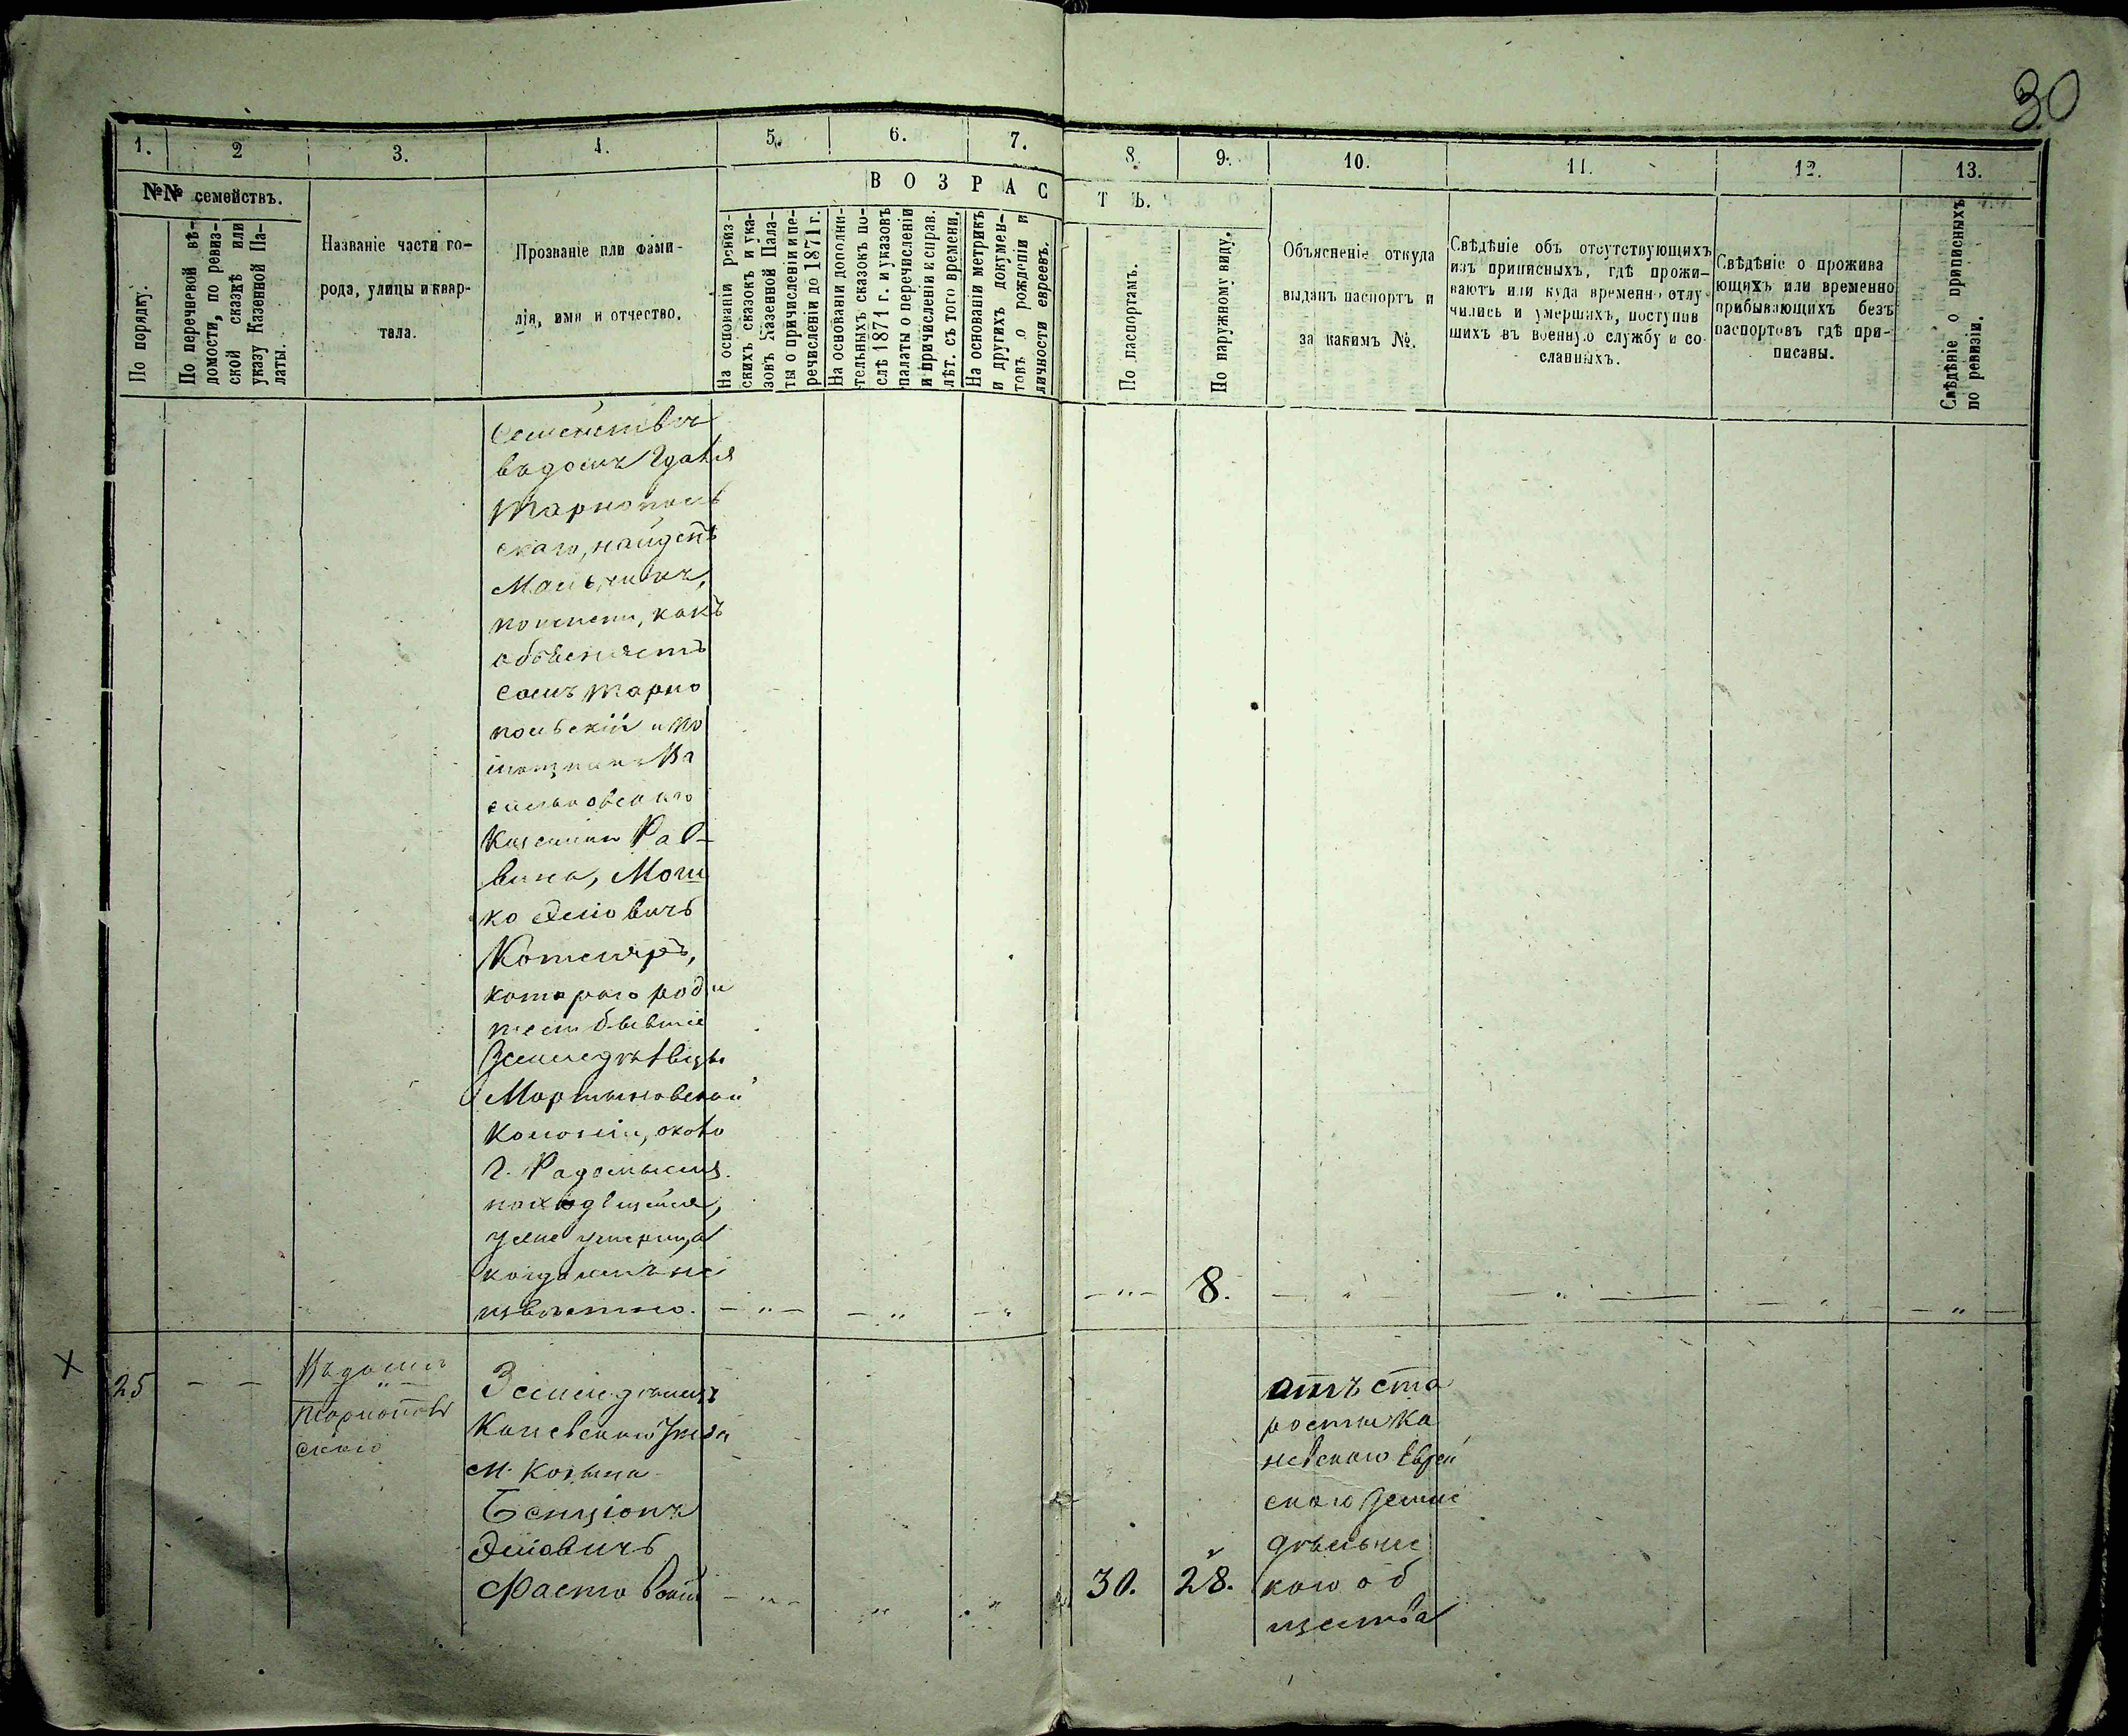 30
1. 2 3. 4. 5. 6. 7. 8. 9. 10. 11. 12. 13.
№№ семействъ.
По порядку.
По перечневой вѣ-
домости, по ревиз-
ской сказкѣ или
указу Казенной Па-
латы.
Названіе части го-
рода, улицы и квар-
тала.
Прозваніе или фами-
лія, имя и отчество.
ВОЗРАСТЪ.
На основаніи ревиз-
скихъ сказокъ и ука-
зовъ Казенной Пала-
ты о причисленіи и пе-
речисленіи до 1871 г.
На основаніи дополни-
тельныхъ сказокъ по-
слѣ 1871 г. и указовъ
палаты о перечисленіи
и причисленіи к справ.
лѣт. съ того времени.
На основаніи метрикъ
и другихъ докумен-
товъ о рожденіи и
личности евреевъ.
По паспортамъ.
По наружному виду.
Объясненіе откуда
выданъ паспортъ и
за какимъ №.
Свѣдѣніе объ отсутствующихъ
изъ приписныхъ, гдѣ прожи-
ваютъ или куда временно отлу-
чились и умершихъ, поступив
шихъ въ военную службу и со-
сланныхъ.
Свѣдѣніе о прожива
ющихъ или временно
прибывающихъ безъ
паспортовъ гдѣ при-
писаны.
Свѣдѣніе о приписныхъ
по ревизіи.
Семействъ
въ домѣ
Тарнополь
скаго, найденъ
Мальчикъ,
по имени, какъ
объясняетъ
самъ Тарно
польскій и по
мощникъ Ва
сильковскаго
Казеннаго Рав-
вина, Мош
ко Эліовичъ
Котляръ,
котораго роди
тели бывшіе
Земледѣльцы
Мартыновской
Колоніи, около
г. Радомысля
находящейся,
уже умерши, а
когда имъ не
извѣстно. — " — — " — " — " — 8. — " — — " — — " — — " —
х
25 — — Въ домѣ
Тарнополь
скаго
Земледѣлецъ
Каневскаго Уѣзда
м. Козина
Бенціонъ
Эліовичъ
Фастовскій — " — " " 30. 28.
отъ ста
росты Ка
невскаго Еврей
скаго Земле
дѣльчес
каго об
щества